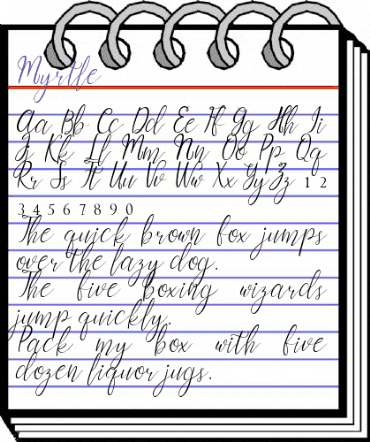 Myrtle
Aa Bb Cc Dd Ee Ff Gg Hh Ii
Jj Kk Ll Mm Nn Oo Pp Qq
Rr Ss Tt Uu Vv Ww Xx Yy Zz 1 2
3 4 5 6 7 8 9 0
The quick brown fox jumps
over the lazy dog.
The five boxing wizards
jump quickly.
Pack my box with five
dozen liquor jugs.